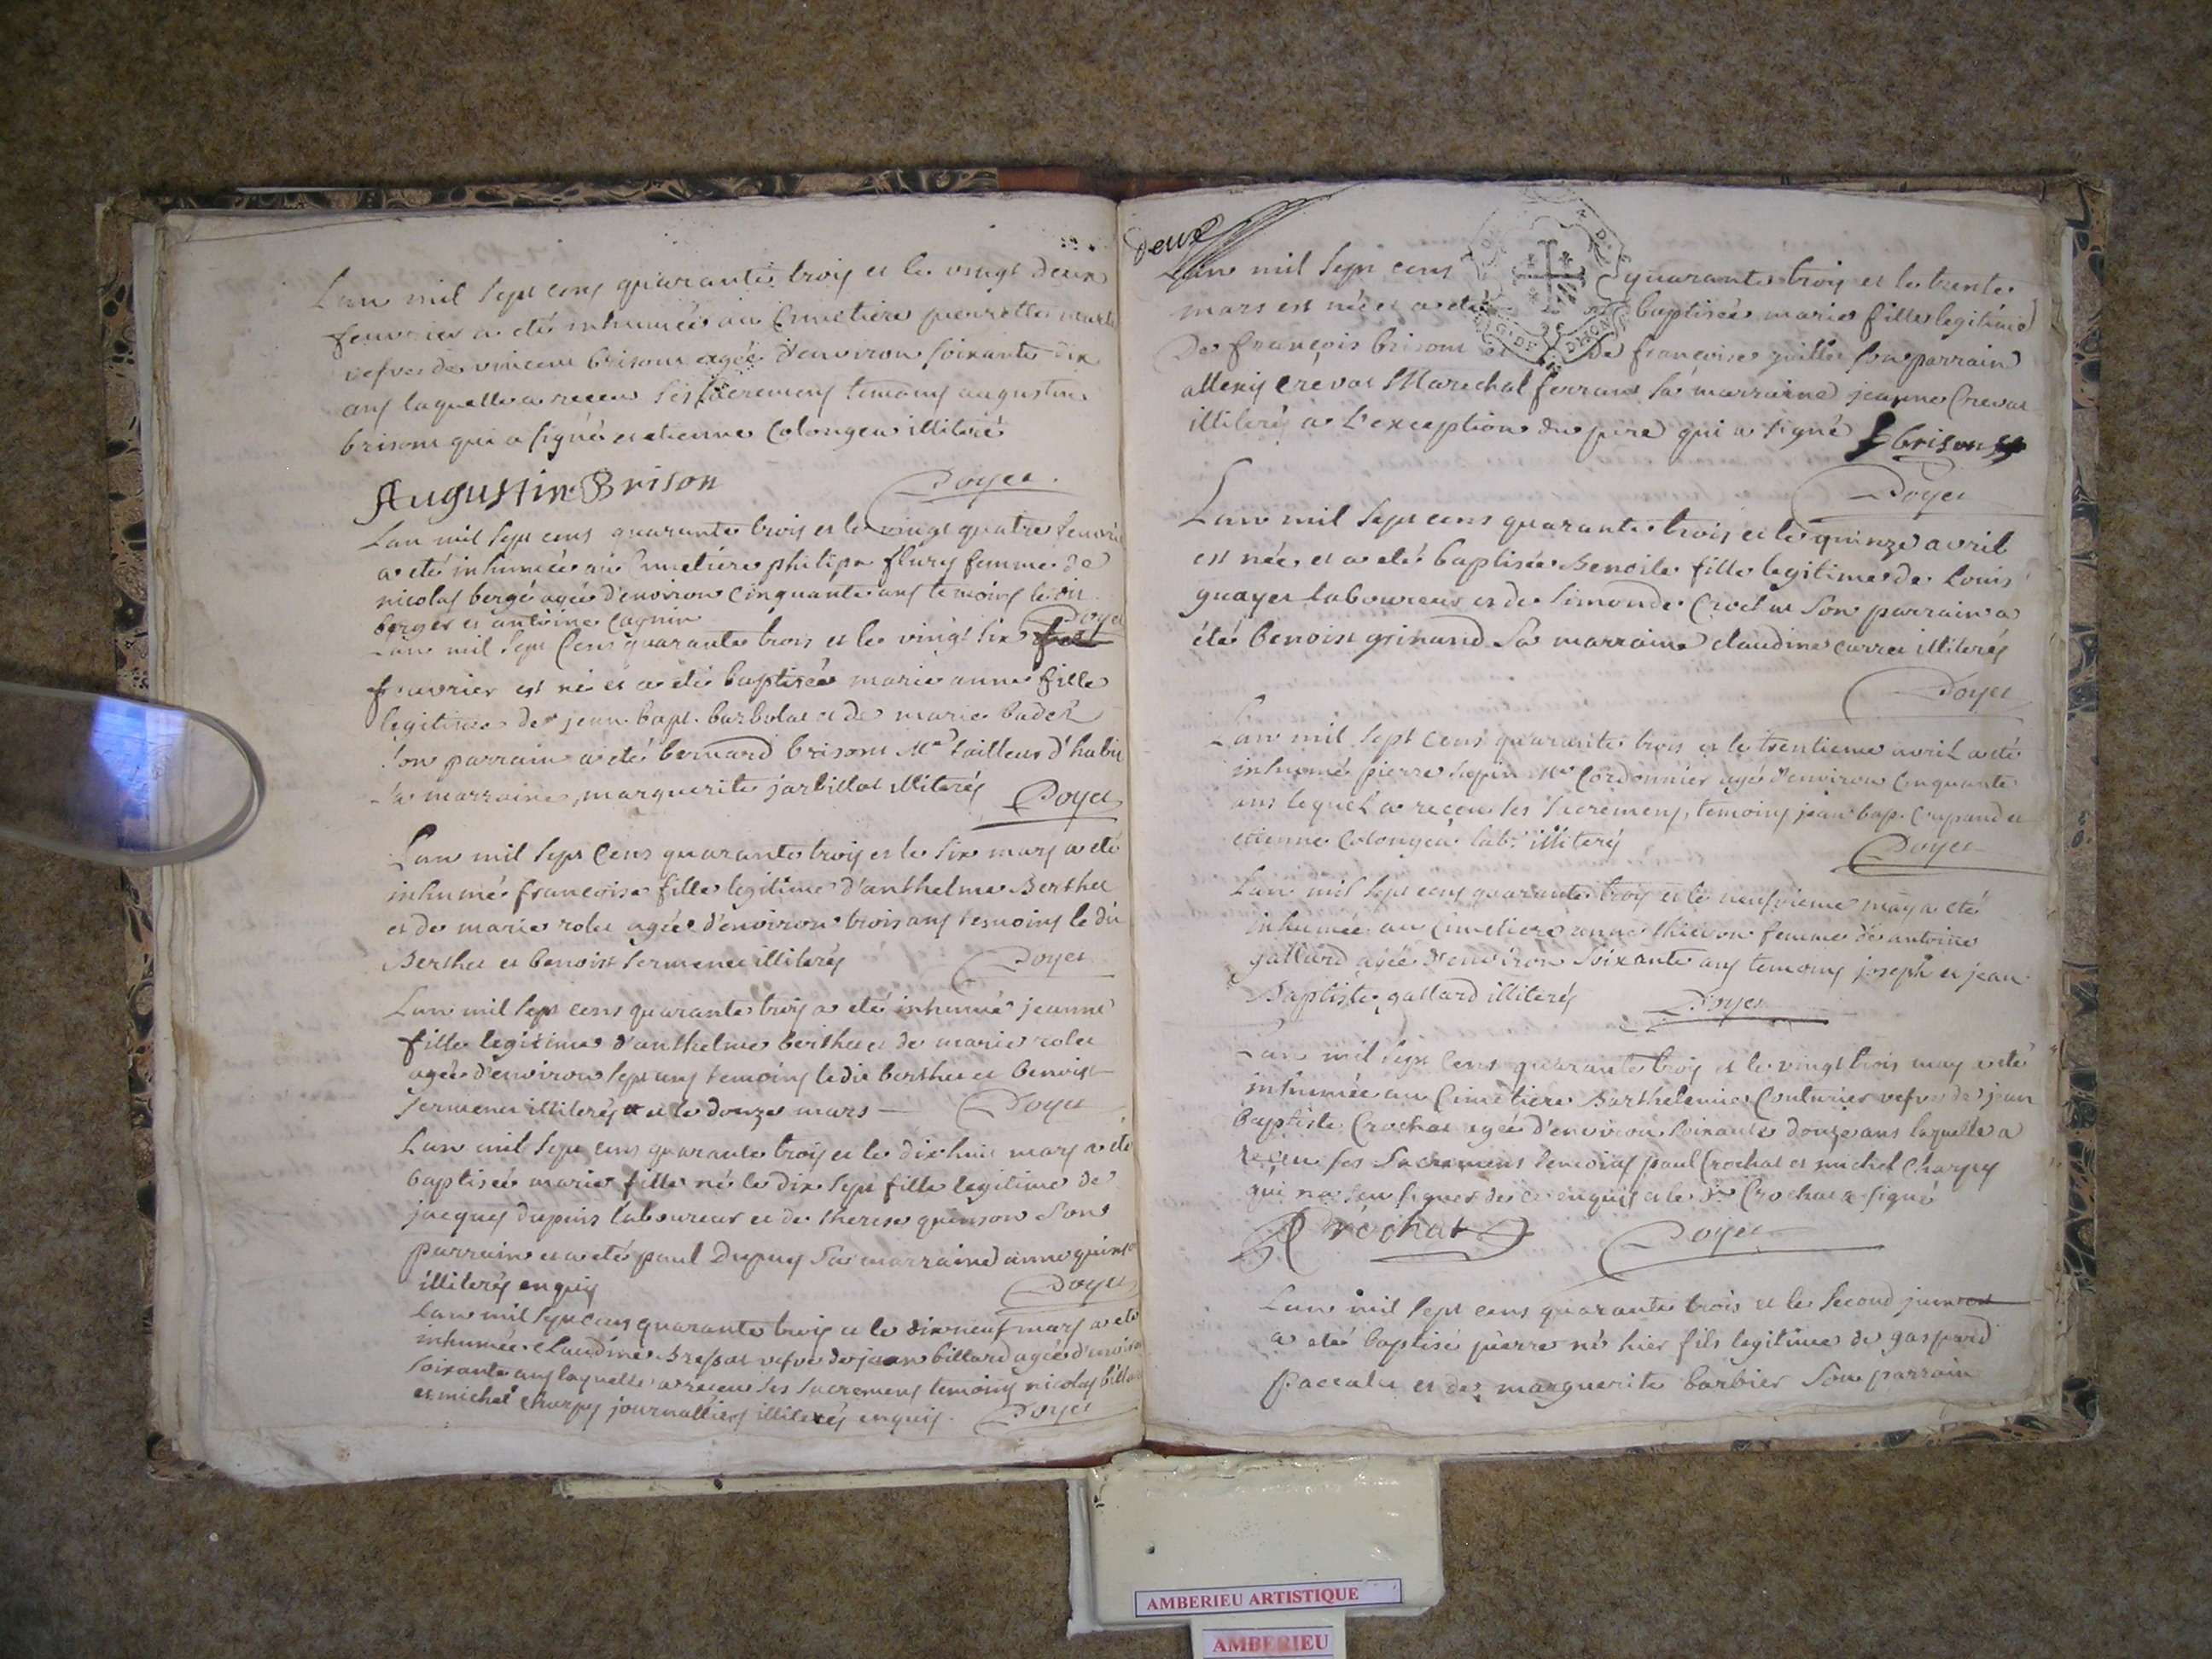 Lan mil sept cens quarante trois et le vingt deux
feuvrier a eté inhumée au Cimetiere pierrette
vefve de vincent brisont agée d'environ soixante dix
ans laquelle a receu ses sacremens temoins augustin
brisont qui a signé et etienne Colongea illiteré
Augustin Brison Doyet
Lan mil sept cens quarante trois et le vingt quatre feuvrier
a eté inhumée au Cimetiere philipe flury femme de
nicolas bergé agée d'environ Cinquante ans temoins ledit
berger et antoine Cagnin Doyet
Lan mil sept Cens quarante trois et le vingt six
feuvrier est né et a eté baptisée marie anne fille
legitime de jean bapt. barbolat et de marie badet
son parrain a eté bernard brisont Mtre tailleur d'habit
sa marraine marguerite jarbillot illiterés Doyet
Lan mil sept Cens quarante trois et le six mars a eté
inhumé francoise fille legitime d'anthelme Berthet
et de marie rolet agée d'environ trois ans temoins le dit
Berthet et benoist termenet illiterés Doyet
Lan mil sept cens quarante trois a eté inhumé jeanne
fille legitime d'anthelme berthet et de marie rolet
agée d'environ sept ans temoins le dit berthet et benoist
termenet illiterés et le douze mars Doyet
Lan mil sept cens quarante trois et le dix huit mars a eté
baptisée marie fille né le dix sept fille legitime de
jacques dupuis laboureur et de therese quinson son
parrain a eté paul Dupuis sa marraine anne quinson
illiterés enquis Doyet
Lan mil sept cens quarante trois et le dix neuf mars a eté
inhumée Claudine Bressat vefve de jean billard agée d'environ
soixante ans laquelle a receu ses sacremens temoins nicolas billard
et michel Charpy journalliers illiterés enquis. Doyet
deux
Lan mil sept cens quarante trois et le trente
mars est née et a eté baptisée marie fille legitime
De françois brisont et de françoise juillet son parrain
allexis Crevat Marechal ferrant sa marraine jeanne Crevat
illiterés a l'exception du pere qui a signé f brison
Doyet
Lan mil sept cens quarante trois et le quinze avril
est née et a eté baptisée Benoite fille legitime de Louis
guayet laboureur et de simonde Crochat son parrain a
été benoist grinand sa marraine claudine carret illiterés
Doyet
Lan mil sept cens quarante trois et le trentieme avril a eté
inhumé pierre sapin Mtre Cordonnier agé d'environ Cinquante
ans lequel a receu les sacremens, temoins jean bap. Crepand et
etienne Colongea lab. illiterés Doyet
Lan mil sept cens quarante trois et le neufvieme may a eté
inhumée au Cimetiere anne thievon femme de antoine
gallard agée d'environ soixante ans temoins joseph et jean
Baptiste gallard illiterés Doyet
Lan mil sept Cens quarante trois et le vingt trois may a eté
inhumée au Cimetiere Barthelemie Couturier vefve de jean
baptiste Crochat agée d'environ soixante douze ans laquelle a
receu ses Sacremens temoins paul Crochat et michel Charpy
qui na seu signer de ce enquis et le Sr Crochat a signé
Crochat Doyet
Lan mil sept cens quarante trois et le second juin
a eté baptisé pierre né hier fils legitime de gaspard
paccalet et de marguerite barbier son parrain
AMBERIEU ARTISTIQUE
AMBERIEU